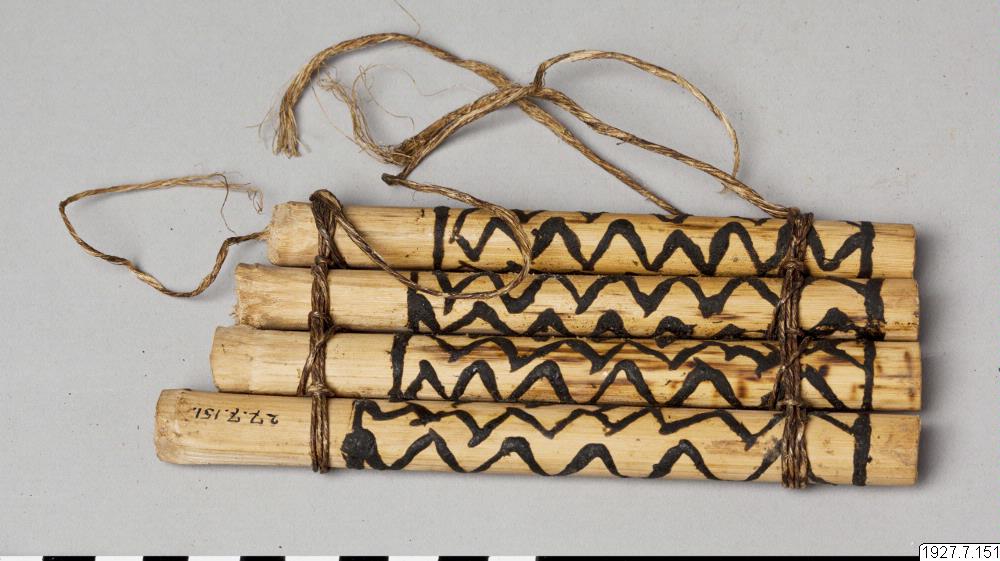 27.7.151.
1927.7.151